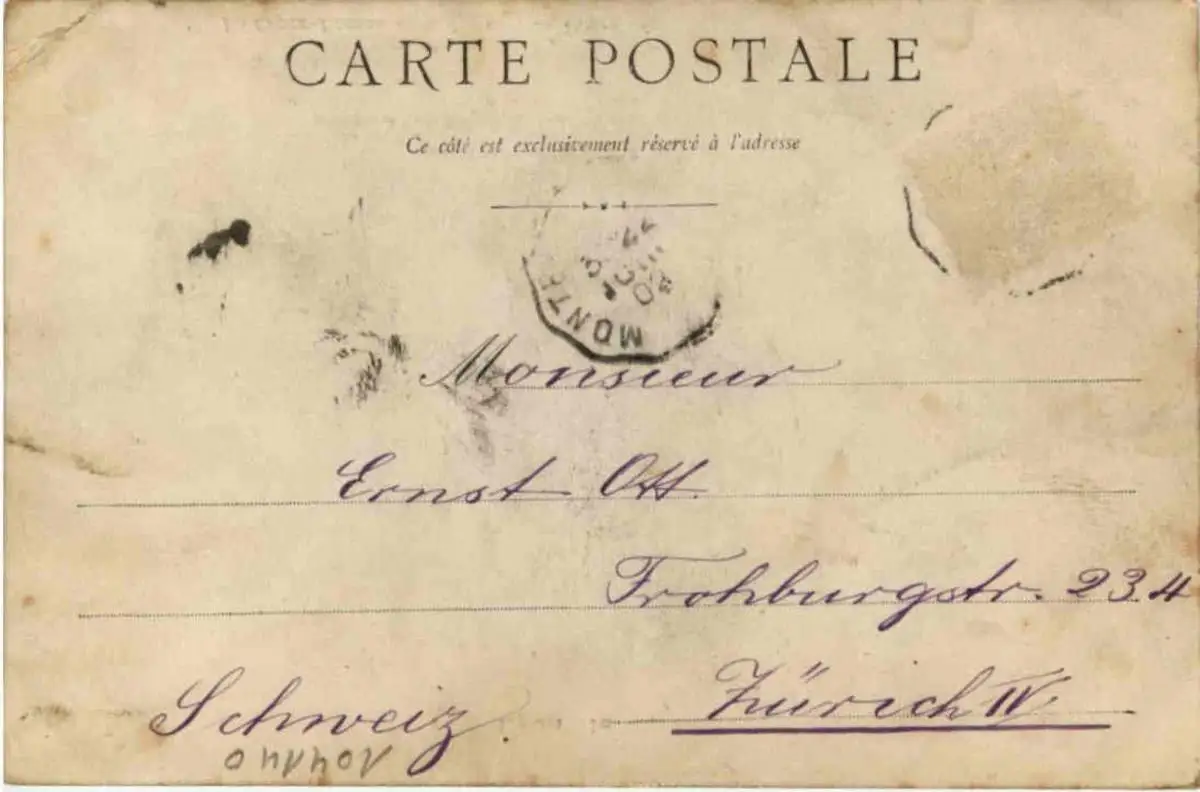 CARTE POSTALE
Ce côté est exclusivement réservé à l'adresse
Monsieur
Ernst Ott.
Frohburgstr. 234
Zürich IV
Schweiz